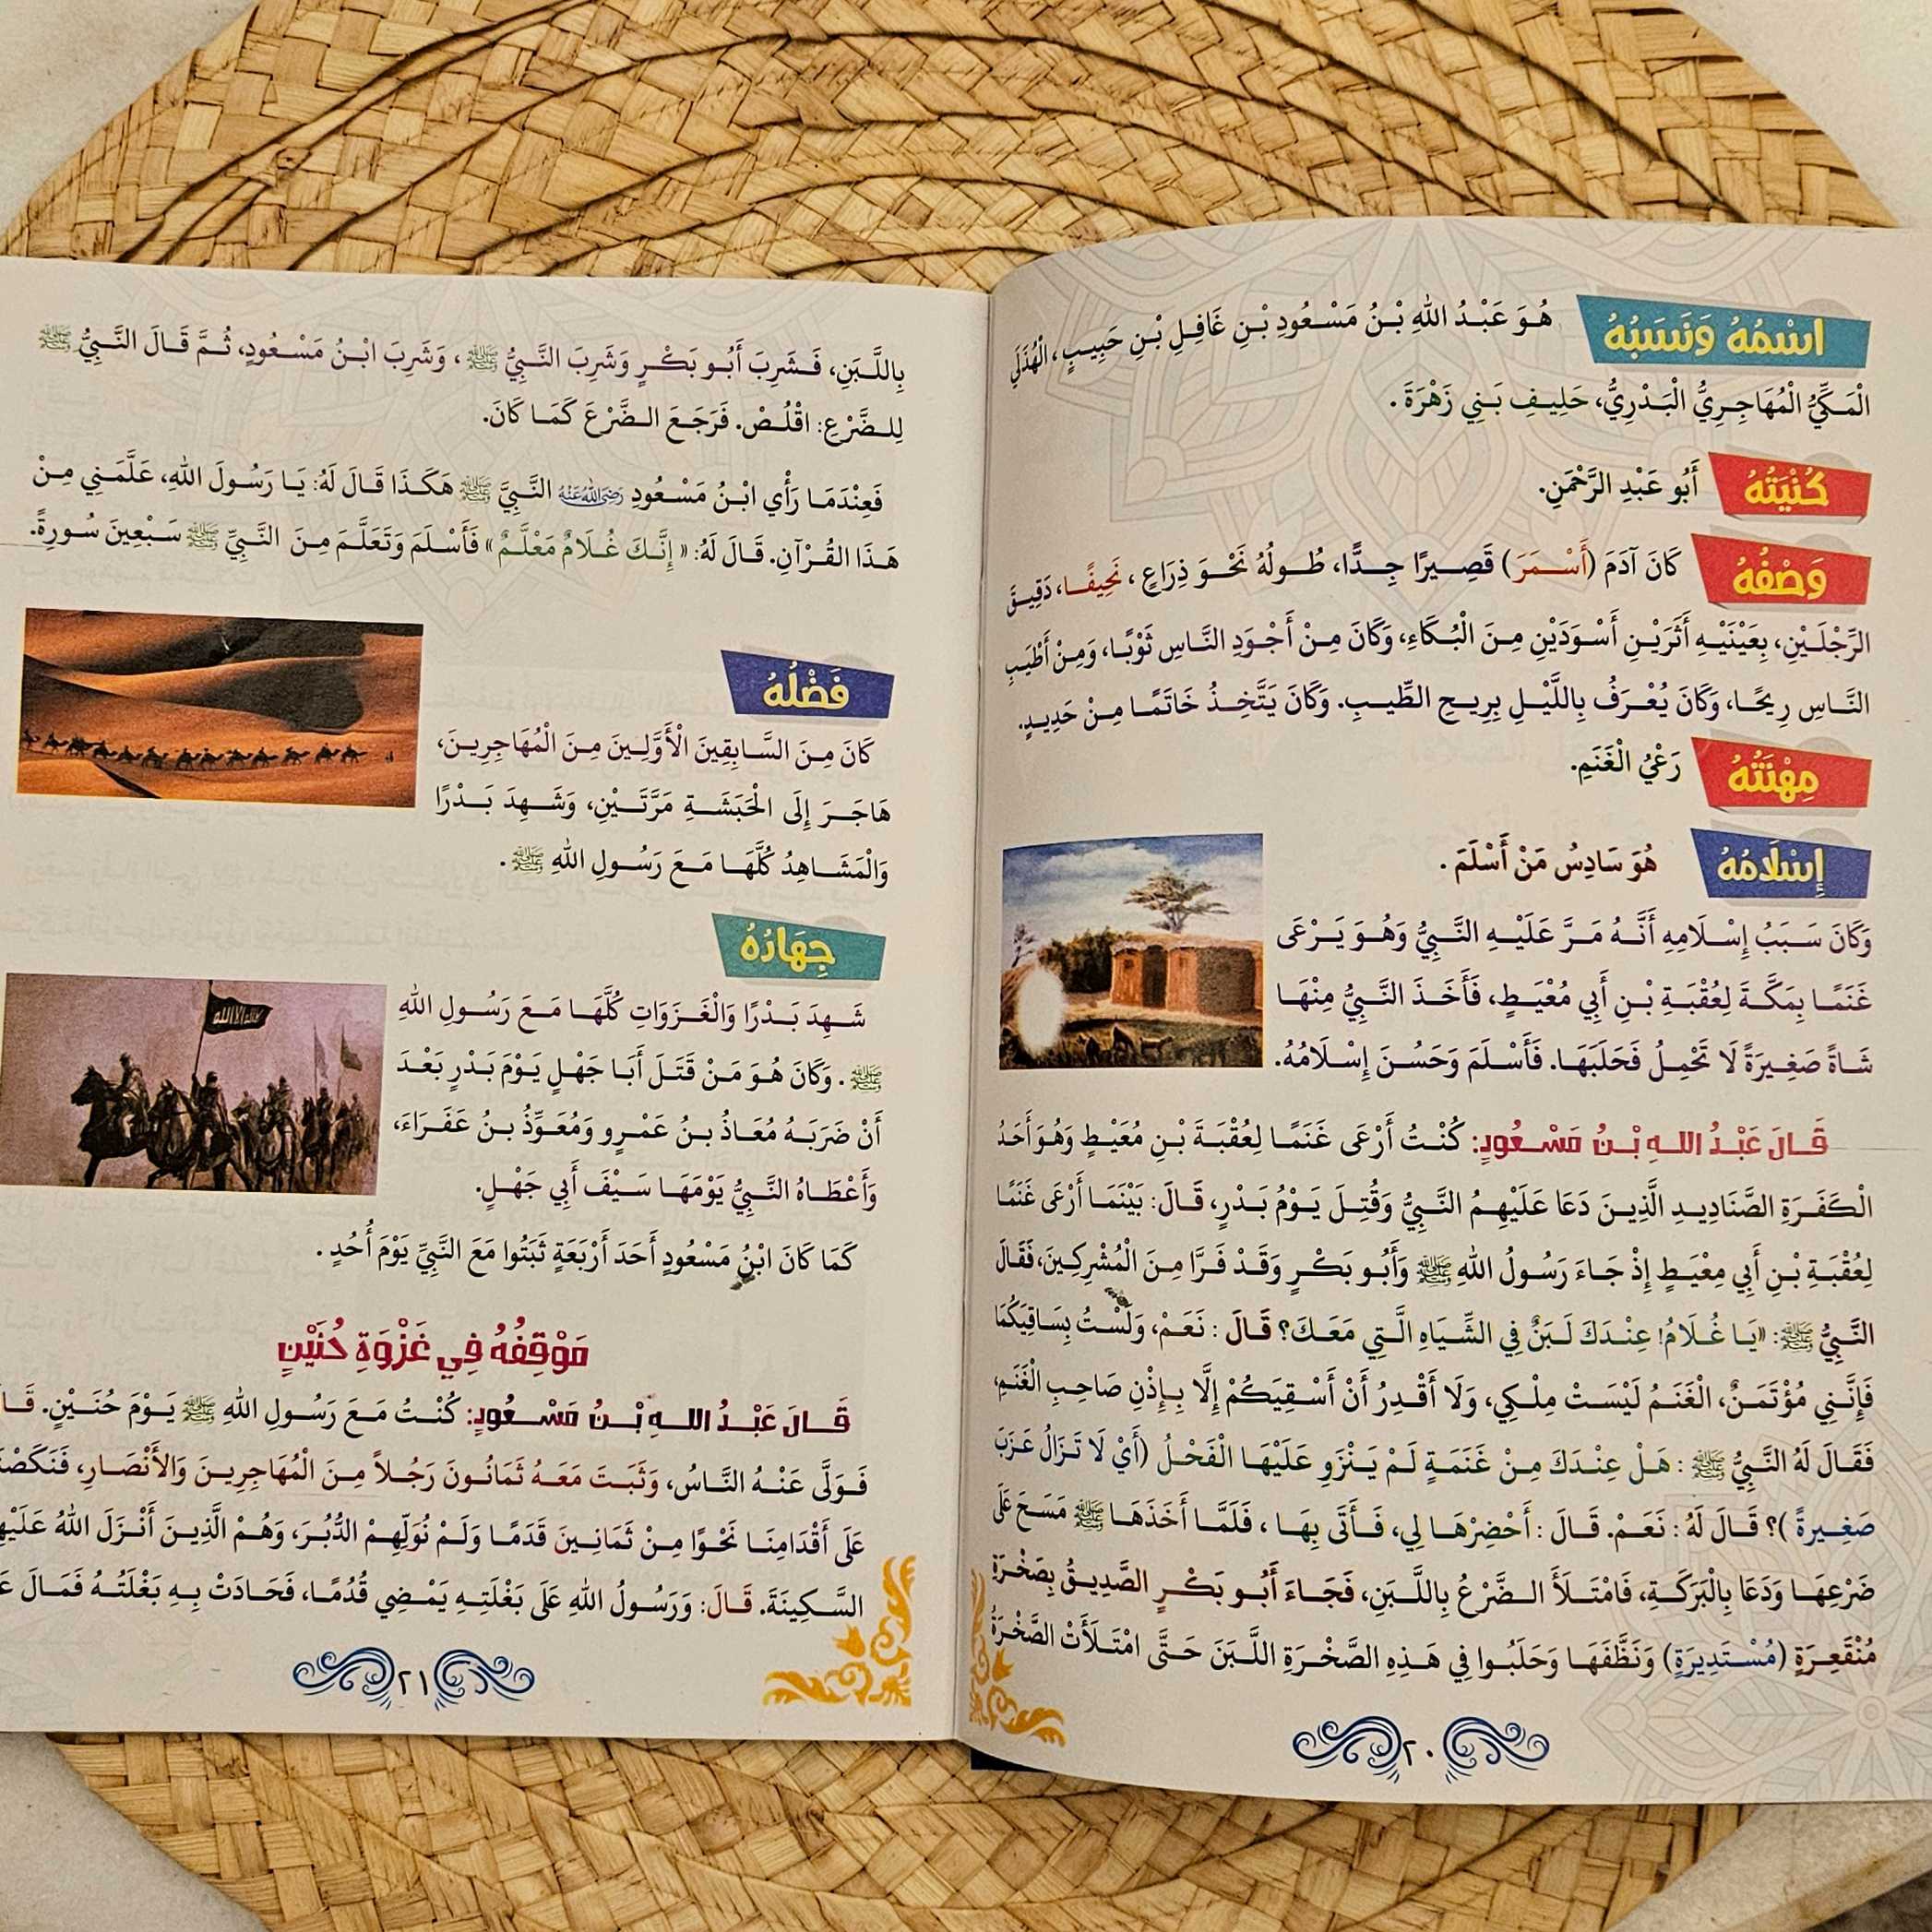 اسْمُهُ وَنَسَبُهُ
هُوَ عَبْدُ اللهِ بْنُ مَسْعُودِ بْنِ غَافِلِ بْنِ حَبِيبٍ، الْهُذَلَيّ
الْمَكِّيُّ الْمُهَاجِرِيُّ الْبَدْرِيُّ، حَلِيفِ بَنِي زَهْرَةَ.
كُنْيَتُهُ
أَبُو عَبْدِ الرَّحْمَنِ.
وَصْفُهُ
كَانَ آدَمَ (أَسْمَرَ) قَصِيرًا جِدًّا، طُولُهُ نَحْوَ ذِرَاعٍ، نَحِيفًا، دَقِيقَ
الرِّجْلَيْنِ، بِعَيْنَيْهِ أَثَرَيْنِ أَسْوَدَيْنِ مِنَ الْبُكَاءِ، وَكَانَ مِنْ أَجْوَدِ النَّاسِ ثَوْبًا، وَمِنْ أَطْيَبِ
النَّاسِ رِيحًا، وَكَانَ يُعْرَفُ بِاللَّيْلِ بِرِيحِ الطِّيبِ. وَكَانَ يَتَّخِذُ خَاتَمًا مِنْ حَدِيدٍ.
مِهْنَتُهُ
رَعْيُ الْغَنَمِ.
إِسْلَامُهُ
هُوَ سَادِسُ مَنْ أَسْلَمَ.
وَكَانَ سَبَبُ إِسْلَامِهِ أَنَّهُ مَرَّ عَلَيْهِ النَّبِيُّ وَهُوَ يَرْعَى
غَنَمًا بِمَكَّةَ لِعُقْبَةِ بْنِ أَبِي مُعْيَطٍ، فَأَخَذَ النَّبِيُّ مِنْهَا
شَاةً صَغِيرَةً لَا تَحْمِلُ فَحَلَبَهَا. فَأَسْلَمَ وَحَسُنَ إِسْلَامُهُ.
قَالَ عَبْدُ اللهِ بْنُ مَسْعُودٍ: كُنْتُ أَرْعَى غَنَمًا لِعُقْبَةَ بْنِ مُعَيْطٍ وَهُوَ أَحَدُ
الْكَفَرَةِ الصَّنَادِيدِ الَّذِينَ دَعَا عَلَيْهِمُ النَّبِيُّ وَقُتِلَ يَوْمُ بَدْرٍ، قَالَ: بَيْنَمَا أَرْعَى غَنَمًا
لِعُقْبَةِ بْنِ أَبِي مِعْيَطٍ إِذْ جَاءَ رَسُولُ اللهِ ﷺ وَأَبُو بَكْرٍ وَقَدْ فَرَّا مِنَ الْمُشْرِكِينَ، فَقَالَ
النَّبِيُّ ﷺ: «يَا غُلَامُ! عِنْدَكَ لَبَنٌ فِي الشِّيَاهِ الَّتِي مَعَكَ؟ قَالَ: نَعَمْ، وَلَسْتُ بِسَاقِيَكُمَا
فَإِنَّنِي مُؤْتَمَنٌ، الْغَنَمُ لَيْسَتْ مِلْكِي، وَلَا أَقْدِرُ أَنْ أَسْقِيَكُمْ إِلَّا بِإِذْنِ صَاحِبِ الْغَنَمِ،
فَقَالَ لَهُ النَّبِيُّ ﷺ: هَلْ عِنْدَكَ مِنْ غَنَمَةٍ لَمْ يَنْزَوِ عَلَيْهَا الْفَحْلُ (أَيْ لَا تَزَالُ عَزَبَ
صَغِيرةً)؟ قَالَ لَهُ: نَعَمْ. قَالَ: أَحْضِرْهَا لِي، فَأَتَى بِهَا، فَلَمَّا أَخَذَهَا ﷺ مَسَحَ عَلَى
ضَرْعِهَا وَدَعَا بِالْبَرَكَةِ، فَامْتَلَأَ الضَّرْعُ بِاللَّبَنِ، فَجَاءَ أَبُو بَكْرٍ الصَّدِيقُ بِصَخْرَةٍ
مُنْقَعِرَةٍ (مُسْتَدِيرَةٍ) وَنَظَّفَهَا وَحَلَبُوا فِي هَذِهِ الصَّخْرَةِ اللَّبَنَ حَتَّى امْتَلَأَتْ الصَّخْرَةُ
٢٠
بِاللَّبَنِ، فَشَرِبَ أَبُو بَكْرٍ وَشَرِبَ النَّبِيُّ ﷺ، وَشَرِبَ ابْنُ مَسْعُودٍ، ثُمَّ قَالَ النَّبِيُّ ﷺ
لِلضَّرْعِ: اقْلُصْ. فَرَجَعَ الضَّرْعَ كَمَا كَانَ.
فَعِنْدَمَا رَأْي ابْنُ مَسْعُودِ رَضِيَ اللهُ عَنْهُ النَّبِيَّ ﷺ هَكَذَا قَالَ لَهُ: يَا رَسُولَ اللهِ، عَلَّمَنِي مِنْ
هَذَا الْقُرْآنِ. قَالَ لَهُ: «إِنَّكَ غُلَامٌ مَعْلَّمٌ» فَأَسْلَمَ وَتَعَلَّمَ مِنَ النَّبِيِّ ﷺ سَبْعِينَ سُورِةً.
فَضْلُهُ
كَانَ مِنَ السَّابِقِينَ الْأَوَّلِينَ مِنَ الْمُهَاجِرِينَ،
هَاجَرَ إِلَى الْحَبَشَةِ مَرَّتَيْنِ، وَشَهِدَ بَدْرًا
وَالْمَشَاهِدُ كُلَّهَا مَعَ رَسُولِ اللهِ ﷺ.
جِهَادُهُ
شَهِدَ بَدْرًا وَالْغَزَوَاتِ كُلَّهَا مَعَ رَسُولِ اللهِ
ﷺ. وَكَانَ هُوَ مَنْ قَتَلَ أَبَا جَهْلٍ يَوْمَ بَدْرٍ بَعْدَ
أَنْ ضَرَبَهُ مُعَاذُ بنُ عَمْرٍو وَمُعَوِّذُ بنُ عَفَرَاءَ،
وَأَعْطَاهُ النَّبِيُّ يَوْمَهَا سَيْفَ أَبِي جَهْلٍ.
كَمَا كَانَ ابْنُ مَسْعُودٍ أَحَدَ أَرْبَعَةٍ ثَبَتُوا مَعَ النَّبِيِّ يَوْمَ أُحُدٍ.
مَوْقِفُهُ فِي غَزْوَةِ حُنَيْنٍ
قَالَ عَبْدُ اللهِ بْنُ مَسْعُودٍ: كُنْتُ مَعَ رَسُولِ اللهِ ﷺ يَوْمَ حُنَيْنٍ.
فَوَلَّى عَنْهُ النَّاسُ، وَثَبَتَ مَعَهُ ثَمَانُونَ رَجُلاً مِنَ الْمُهَاجِرِينَ وَالأَنْصَارِ،
عَلَى أَقْدَامِنَا نَحْوًا مِنْ ثَمَانِينَ قَدَمًا وَلَمْ نُوَلِّهِمْ الدُّبُرَ، وَهُمْ الَّذِينَ أَنْزَلَ اللهُ
السَّكِينَةَ. قَالَ: وَرَسُولُ اللهِ عَلَى بَغْلَتِهِ يَمْضِي قُدُمًا، فَحَادَتْ بِهِ بَغْلَتُهُ فَمَالَ
٢١